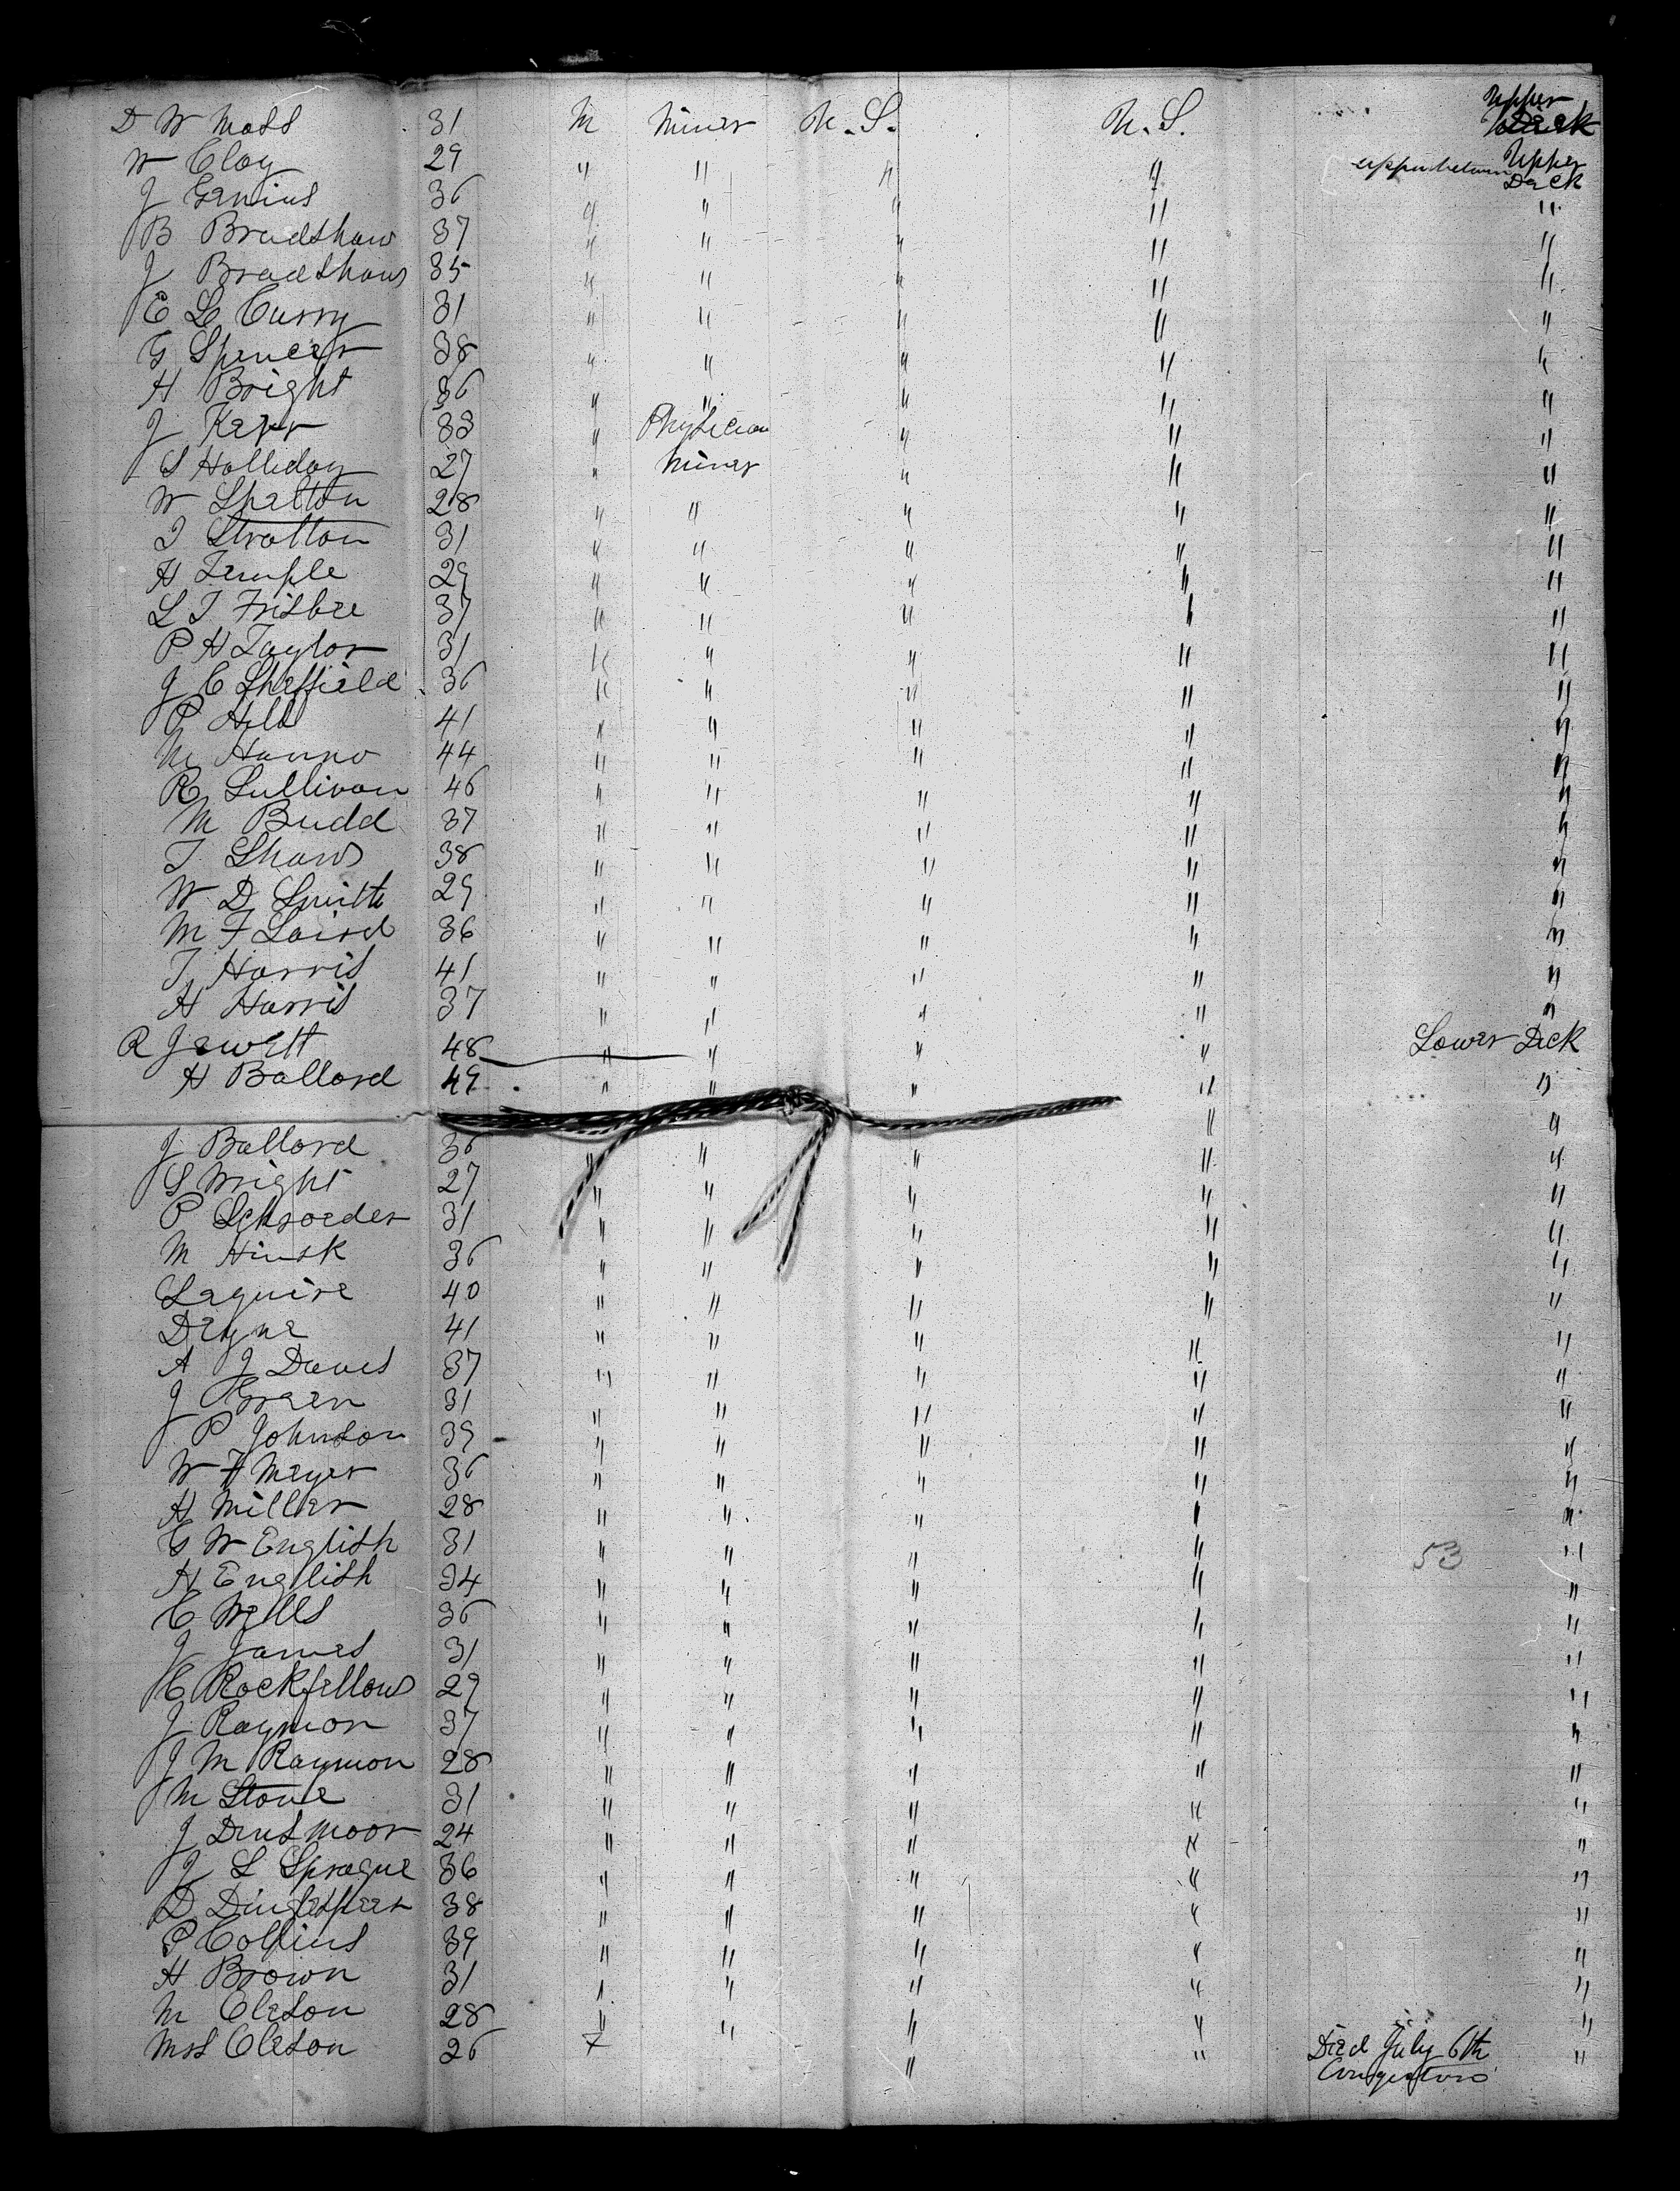 D W Moss 31 M Miner U.S. U.S. Upper Deck
W Clay 29 " " " " upper between Upper Deck
J Genius 36 " " " " "
B Bradshaw 37 " " " " "
J Bradshaw 35 " " " " "
E L Curry 31 " " " " "
G Spencer 38 " " " " "
H Bright 36 " " " " "
J Kerr 33 " Physician " " "
S Holliday 27 " Miner " " "
W Shelton 28 " " " " "
T Stratton 31 " " " " "
H Temple 29 " " " " "
L T Frisbee 37 " " " " "
P H Taylor 31 " " " " "
J C Sheffield 36 " " " " "
P Hill 41 " " " " "
M Hanno 44 " " " " "
R Sullivan 46 " " " " "
M Budd 37 " " " " "
T Shaw 38 " " " " "
W D Smith 29 " " " " "
M F Laird 36 " " " " "
T Harris 41 " " " " "
H Harris 37 " " " " "
R Jewett 48 " " " " Lower Deck
H Ballard 49 " " " " "
J Ballard 36 " " " " "
S Wright 27 " " " " "
P Schroeder 31 " " " " "
M Hinsk 36 " " " " "
Leguire 40 " " " " "
Deyne 41 " " " " "
A J Daves 37 " " " " "
J Green 31 " " " " "
J P Johnson 39 " " " " "
W H Meyer 36 " " " " "
H Miller 28 " " " " "
G W English 31 " " " " "
H English 34 " " " " 53 "
C Wells 36 " " " " "
J James 31 " " " " "
C Rockfellow 29 " " " " "
J Raymon 37 " " " " "
J M Raymon 28 " " " " "
M Stone 31 " " " " "
J Densmoor 24 " " " " "
J L Sprague 36 " " " " "
D 38 " " " " "
P Collins 39 " " " " "
H Brown 31 " " " " "
M Oleson 28 " " " " "
Mrs Oleson 26 F " " Died July 6th "